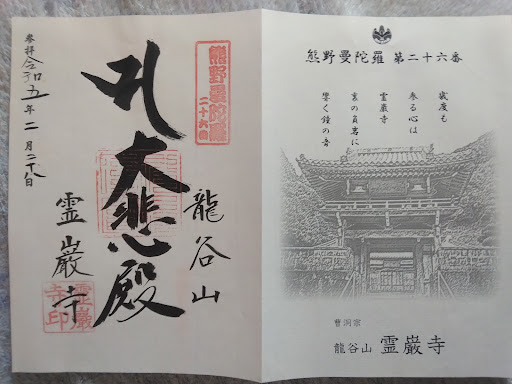 熊野曼陀羅 第二十六番
幾度も
参る心は
霊巌寺
哀の貞嵩に
響く鐘の音
曹洞宗
龍谷山 霊巌寺
熊野曼陀羅
二十六番
龍谷山
大悲殿
霊巌寺
参拝令和五年二月二十八日
霊巌
寺印